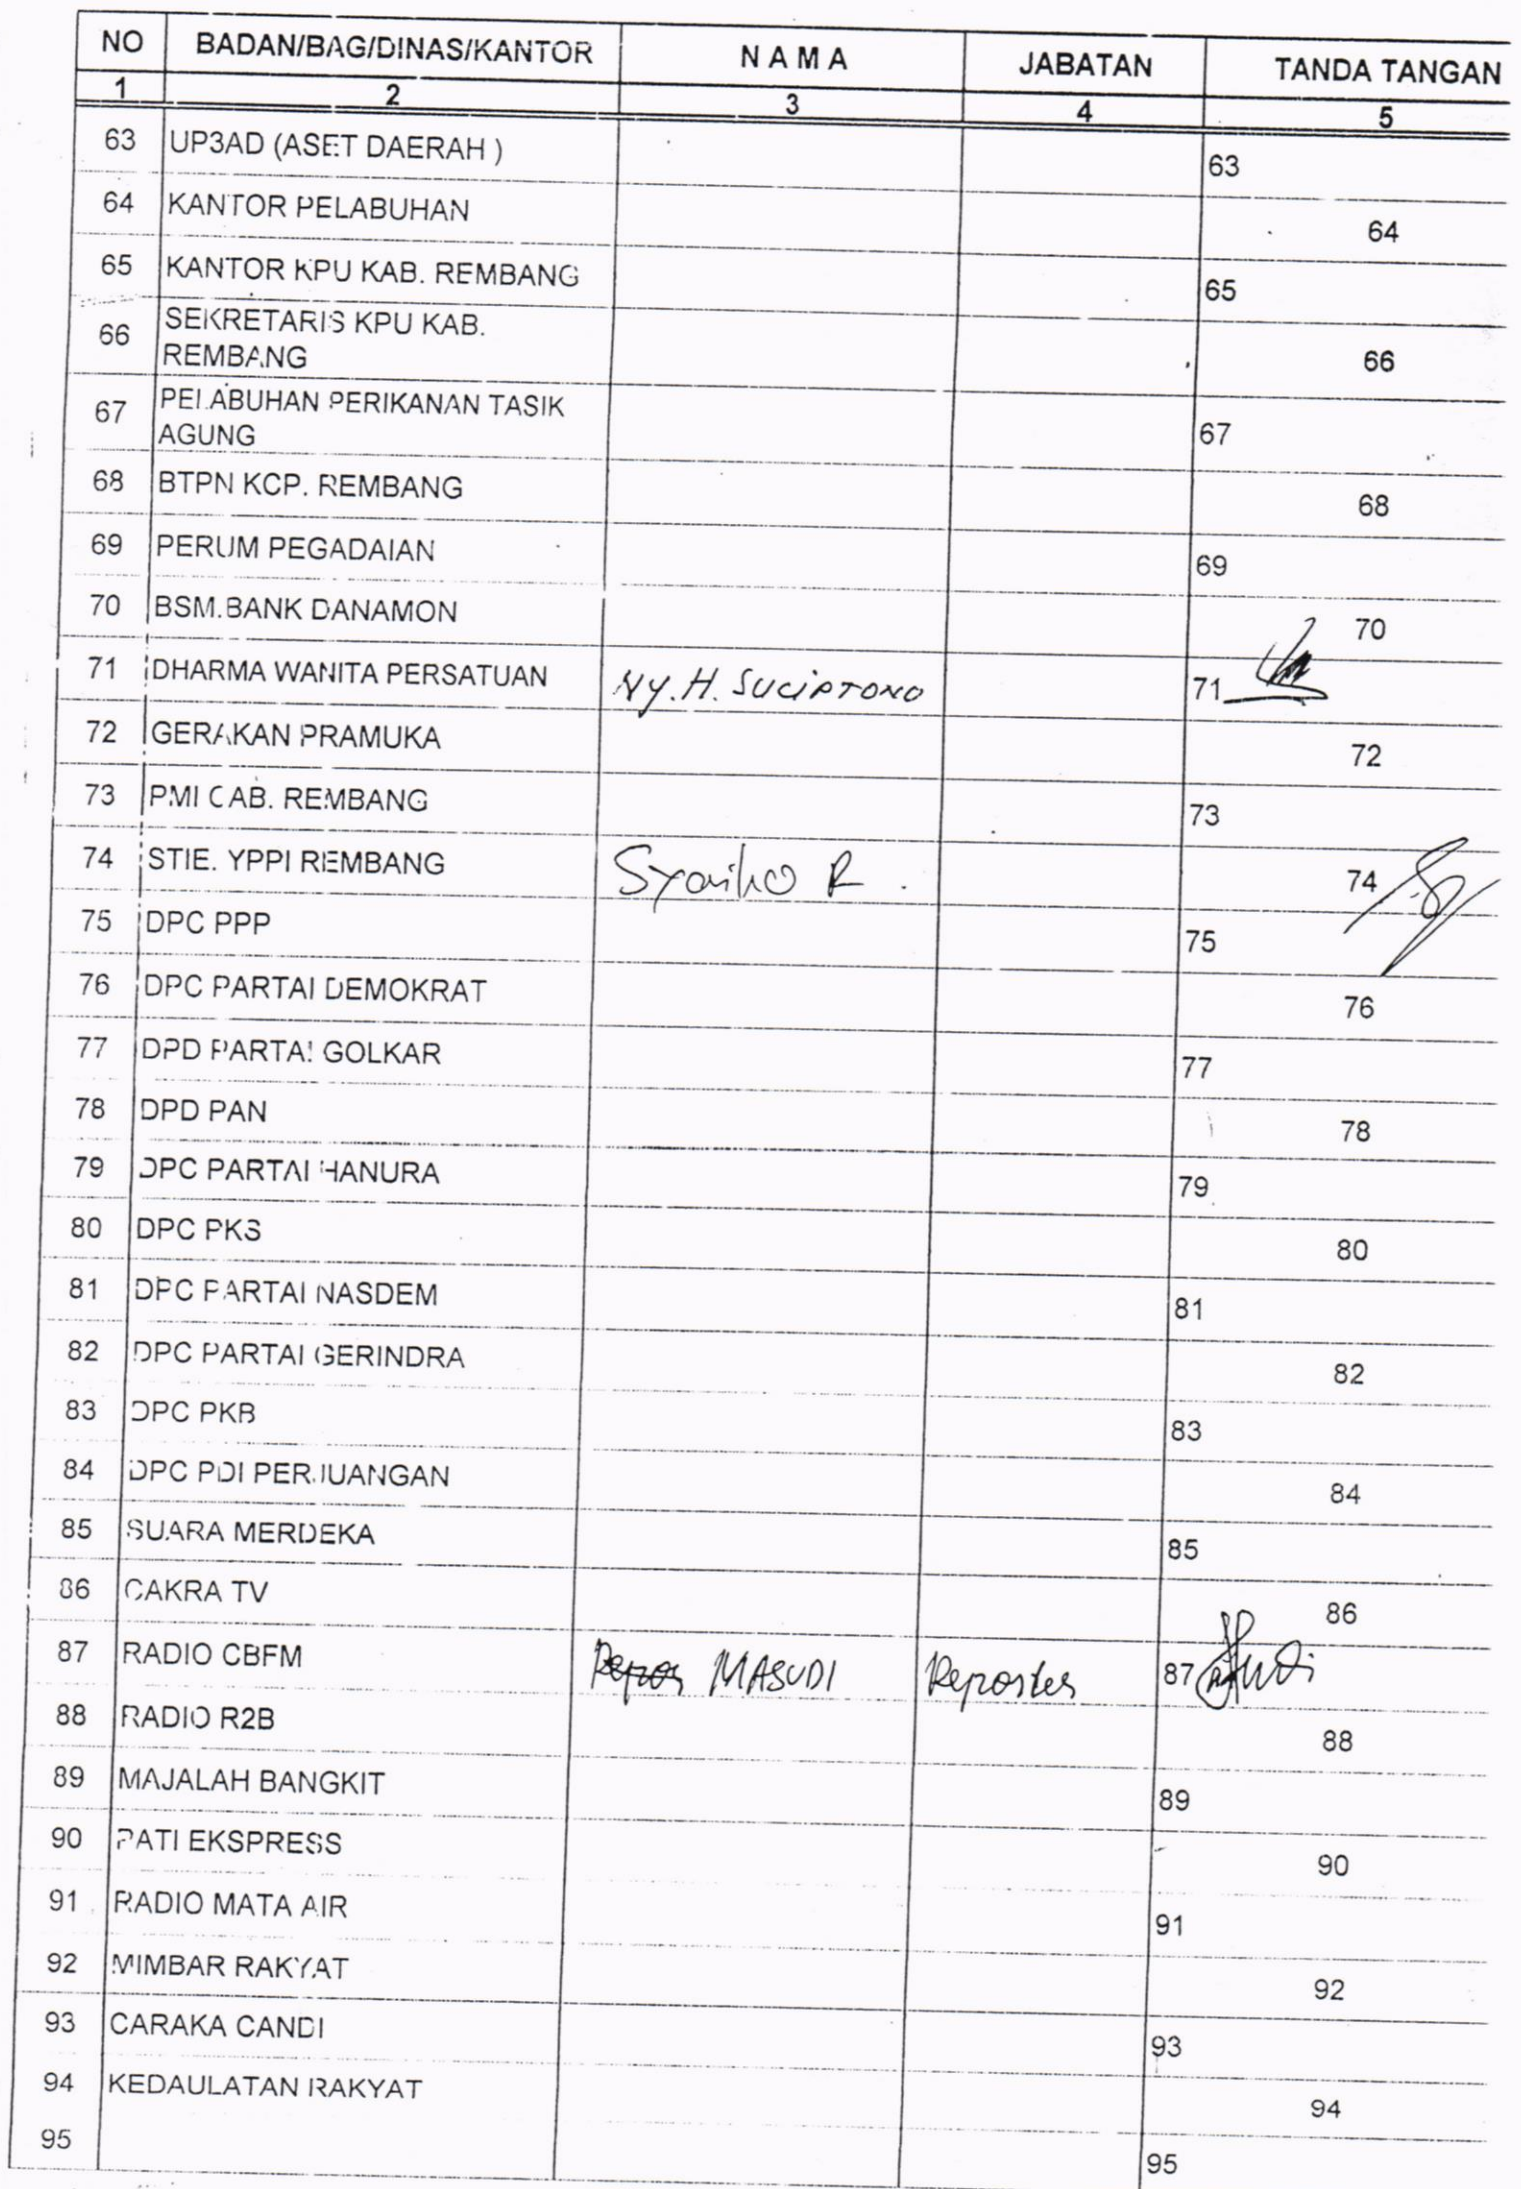 NO BADAN/BAG/DINAS/KANTOR N A M A JABATAN TANDA TANGAN
1 2 3 4 5
63 UP3AD (ASET DAERAH ) 63
64 KANTOR PELABUHAN 64
65 KANTOR KPU KAB. REMBANG 65
66 SEKRETARIS KPU KAB. 66
REMBANG
67 PELABUHAN PERIKANAN TASIK 67
AGUNG
68 BTPN KCP. REMBANG 68
69 PERUM PEGADAIAN 69
70 BSM.BANK DANAMON 70
71 DHARMA WANITA PERSATUAN NY. H. SUCIPTONO 71
72 GERAKAN PRAMUKA 72
73 PMI CAB. REMBANG 73
74 STIE. YPPI REMBANG R. 74
75 DPC PPP 75
76 DPC PARTAI DEMOKRAT 76
77 DPD PARTAI GOLKAR 77
78 DPD PAN 78
79 DPC PARTAI HANURA 79
80 DPC PKS 80
81 DPC PARTAI NASDEM 81
82 DPC PARTAI GERINDRA 82
83 DPC PKB 83
84 DPC PDI PERJUANGAN 84
85 SUARA MERDEKA 85
86 CAKRA TV 86
87 RADIO CBFM MASUDI Reporter 87
88 RADIO R2B 88
89 MAJALAH BANGKIT 89
90 PATI EKSPRESS 90
91 RADIO MATA AIR 91
92 MIMBAR RAKYAT 92
93 CARAKA CANDI 93
94 KEDAULATAN RAKYAT 94
95 95